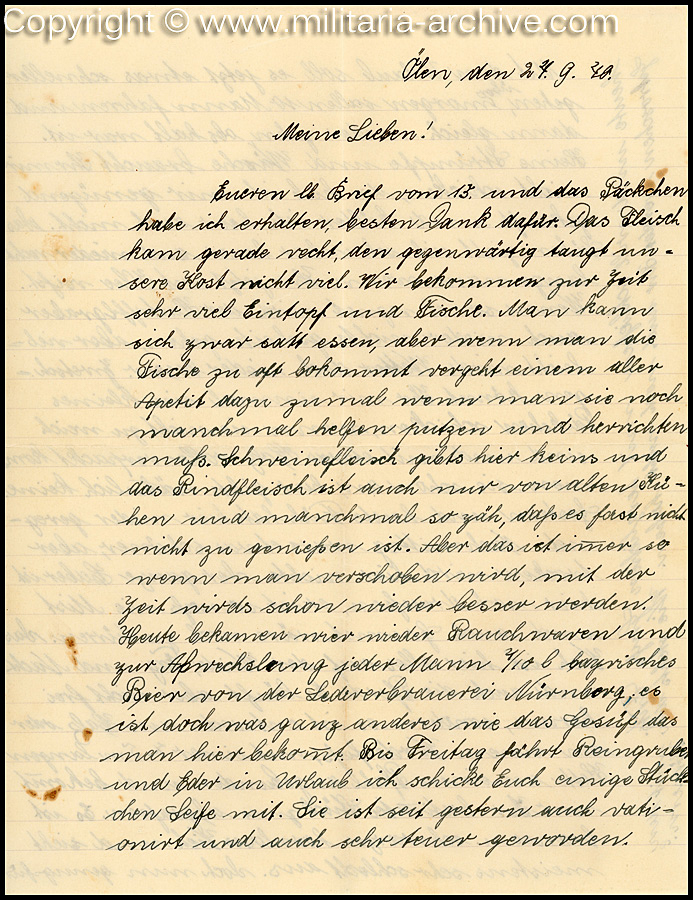 Copyright © www.militaria-archive.com
Ölen, den 24. 9. 40.
Meine Lieben!
Eueren lb. Brief vom 13. und das Päckchen
habe ich erhalten, besten Dank dafür. Das Fleisch
kam gerade recht, den gegenwärtig taugt un-
sere Kost nicht viel. Wir bekommen zur Zeit
sehr viel Eintopf und Fische. Man kann
sich zwar satt essen, aber wenn man die
Fische zu oft bekommt vergeht einem aller
Apetit dazu zumal wenn man sie noch
manchmal helfen putzen und herrichten
muß. Schweinefleisch gibts hier keins und
das Rindfleisch ist auch nur von alten Kü-
hen und manchmal so zäh, daß es fast nicht
nicht zu genießen ist. Aber das ist im̅er so
wenn man verschoben wird, mit der
Zeit wirds schon wieder besser werden.
Heute bekamen wier wieder Rauchwaren und
zur Abwechslung jeder Mann 7/10 l bayrisches
Bier von der Ledererbrauerei Nürnberg, es
ist doch was ganz anderes wie das Gesüf das
man hier bekom̅t. Bis Freitag fährt Reingruber
und Eder in Urlaub ich schicke Euch einige Stück-
chen Seife mit. Sie ist seit gestern auch rati-
onirt und auch sehr teuer geworden.